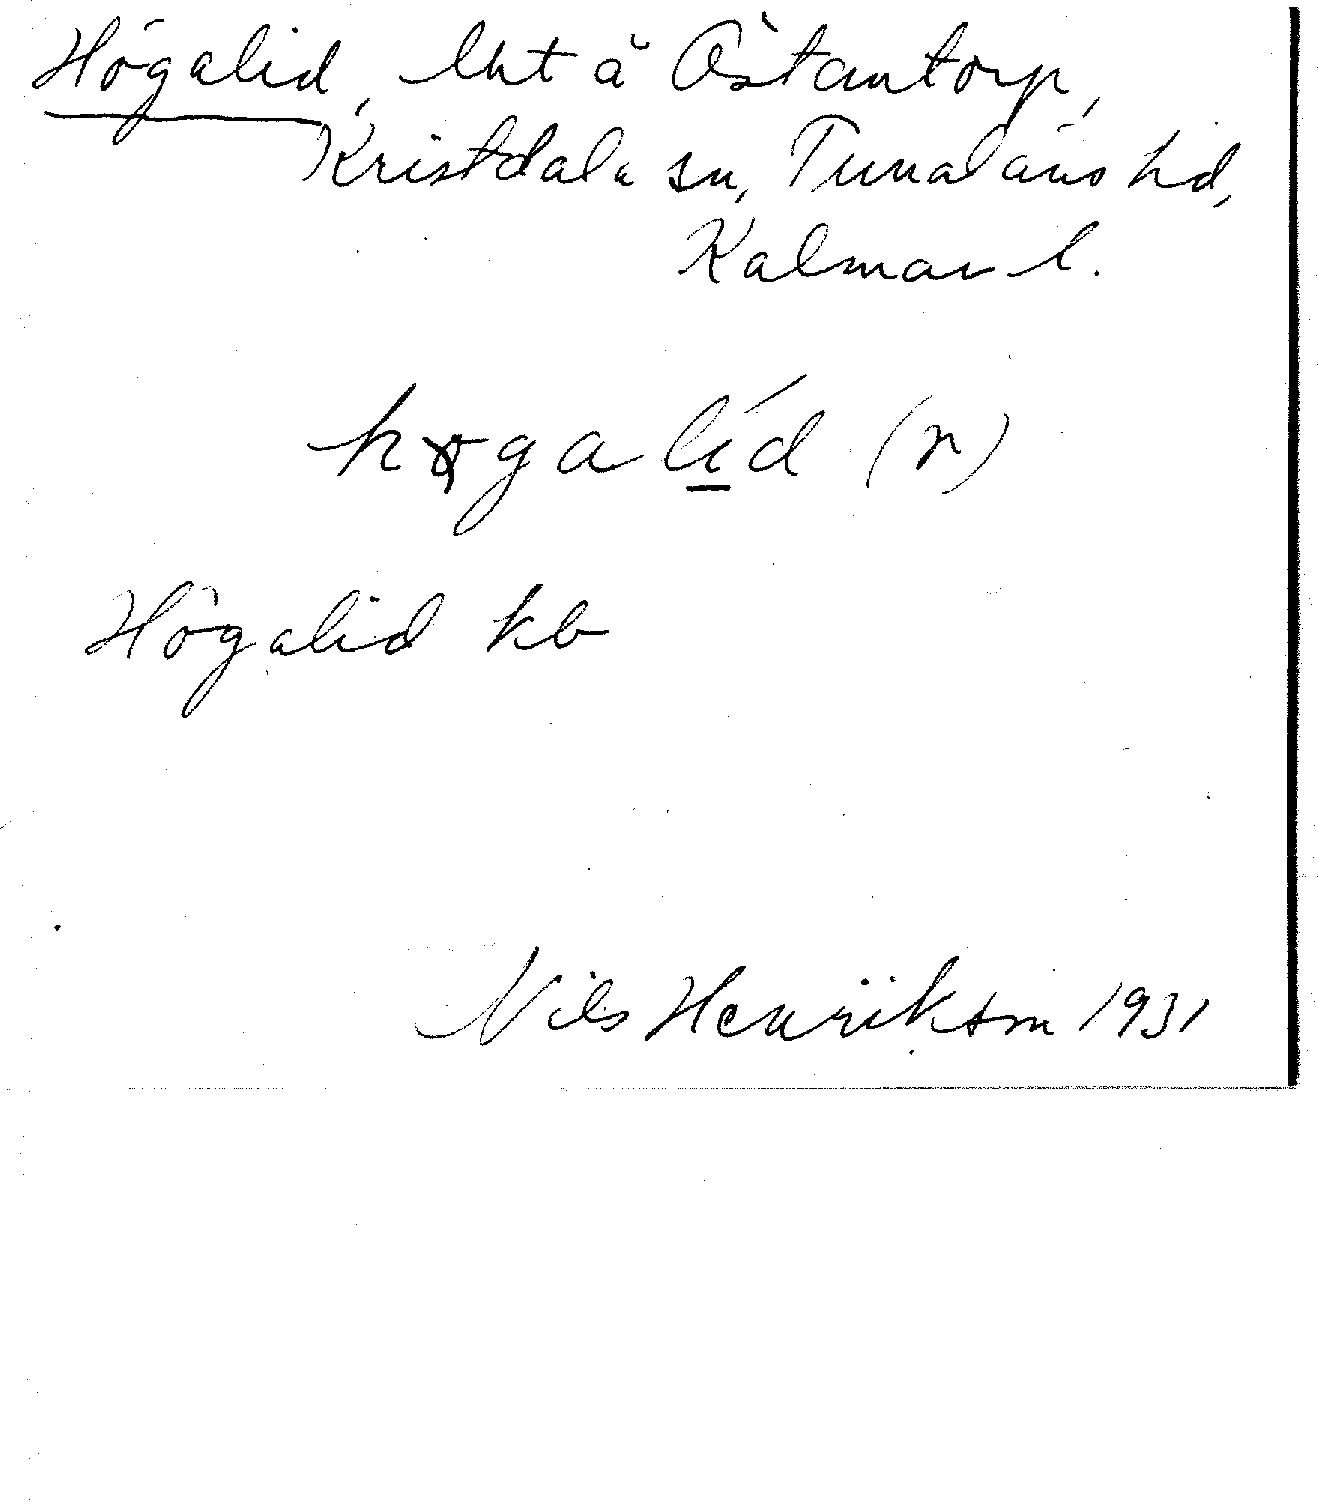 Högalid, lht å Östantorp,
Kristdala sn, Tunaläns hd,
Kalmar l.
høgalíd (n)
Högalid kb
Nils Henrikson 1931